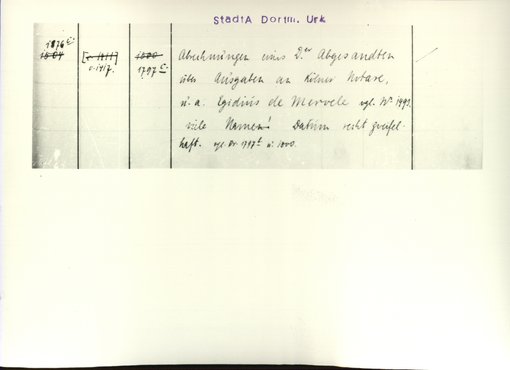 StadtA Dortm. Urk
1876 c
1504
[c. 1411]
c. 1417.
1500
1797 c
Abrechnungen eines D.er Abgesandten
über Ausgaben an Kölner Notare,
u. a. Egidius de Mervele vgl. No 1493.
viele Namen! Datum recht zweifel-
haft. vgl. Nr 1797 u. 1000.